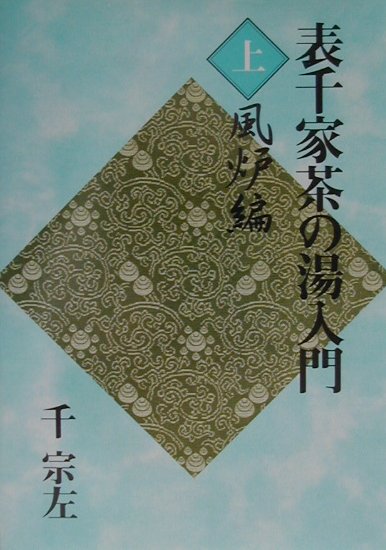 表千家茶の湯入門
上
風炉編
千宗左